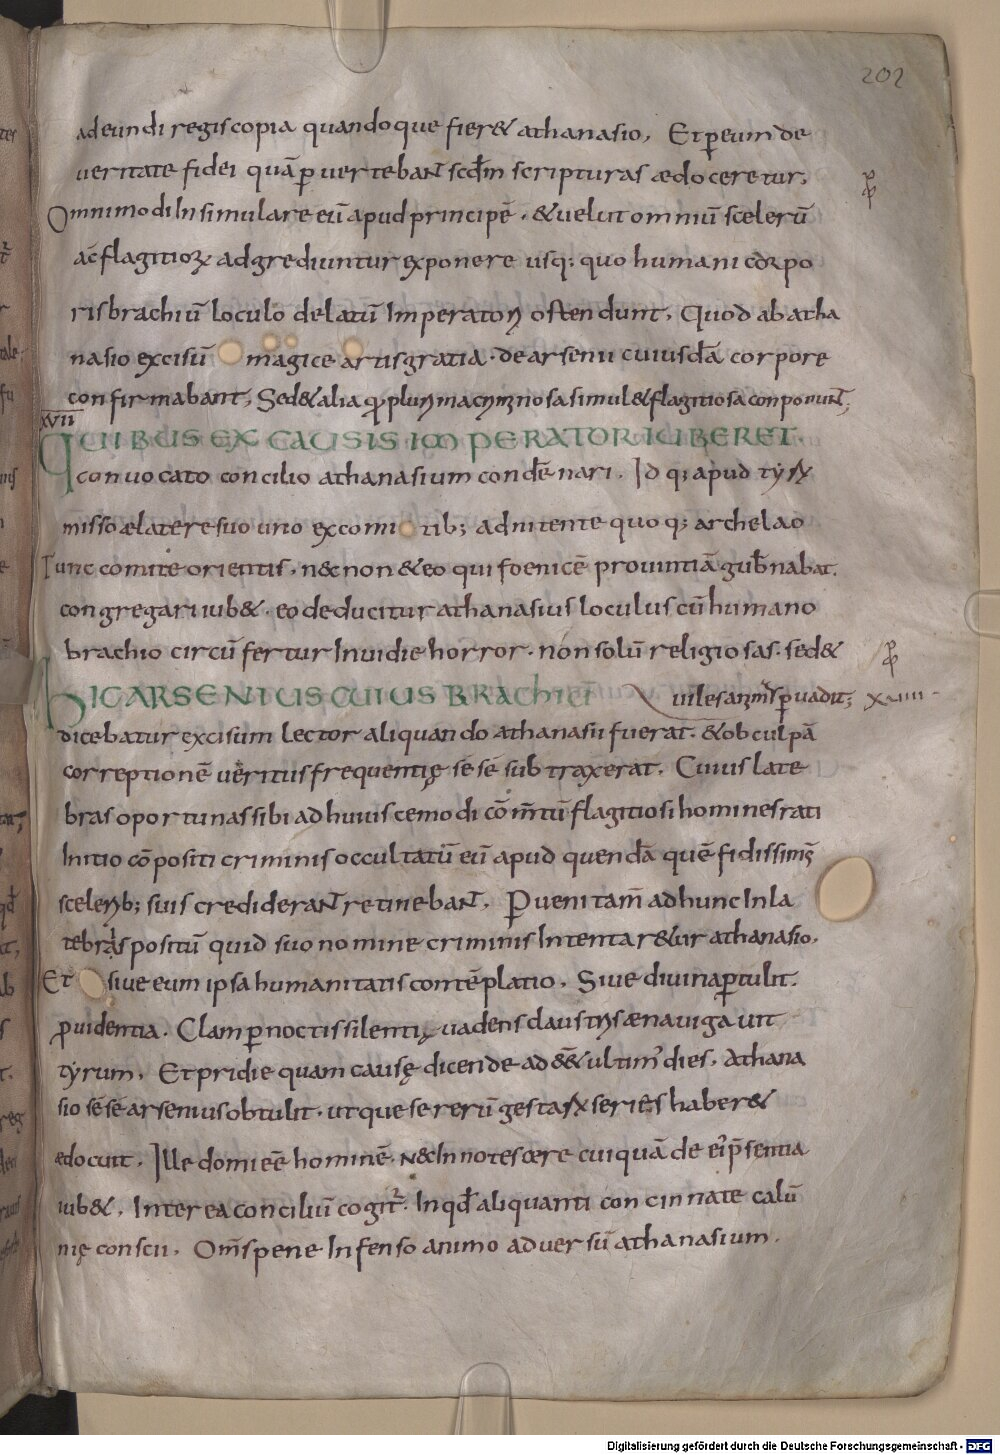 202
adeundi regis copia quandoque fier& athanasio, Et p̱ eum de
veritate fidei quā p̱ verteban̄t scdm̄ scripturas ędoceretur,
Omnimodi Insimulare eū apud principē . & velut omniū scelerū
ac̄ flagitioꝝ adgrediuntur exponere usq; quo humani corpo
ris brachiū loculo delatū Imperatoꝝ ostendunt, Quod ab atha
nasio excisū magice artis gratia . de arsenii cuiusdā corpore
confirmabant, Sed & alia qͣ plurꝝ machinosa simul & flagitiosa componun̄t,
XVII
QUIBUS EX CAUSIS IMPERATOR IUBERET.
convocato concilio athanasium condēnari . Id q; apud tyrū
misso ęlatere suo uno ex comitib; adnitente quoq; archelao
Tunc comite orientis . n&non & eo qui foenicē provintiā gub̄nabat.
congregari iub& . eo deducitur athanasius loculus cū humano
brachio circūfertur Invidie horror . non solū religiosas . sed &
HIC ARSENIUS CUIUS BRACHIŪ
viles animas p̱vadit; XVIIII
dicebatur excisum lector aliquando athanasii fuerat . & ob culpā
correptionē veritus frequentię sese subtraxerat . Cuius late
bras oportunas sibi ad huiuscemodi cōm̄tū flagitiosi homines rati
Initio cōpositi criminis occultatū eū apud quendā quē fidissimū
scelerib; suis crediderant̄ retineban̄t . P̱venit tam̄ ad hunc In la
tebras positū quid suo nomine criminis Intentar&ur athanasio .
Et sive eum ipsa humanitatis contēplatio . Sive divina p̱tulit .
ꝓvidentia . Clam p̱ noctis silentiū vadens claustris ęnavigavit
tyrum . Et pridie quam causę dicende ad e͞e& ultim' dies . Athana
sio sese arsenius obtulit . utque se rerū gestarū series haber&
ędocuit . Ille domi e͞e hominē . n& Innotescere cuiquā de ei' p̄sentia
iub& . Interea conciliū cogitr̄ . In qd̄ aliquanti concinnate calū
nię conscii . Om̄s pene Infenso animo adversū athanasium .
Digitalisierung gefördert durch die Deutsche Forschungsgemeinschaft - DFG